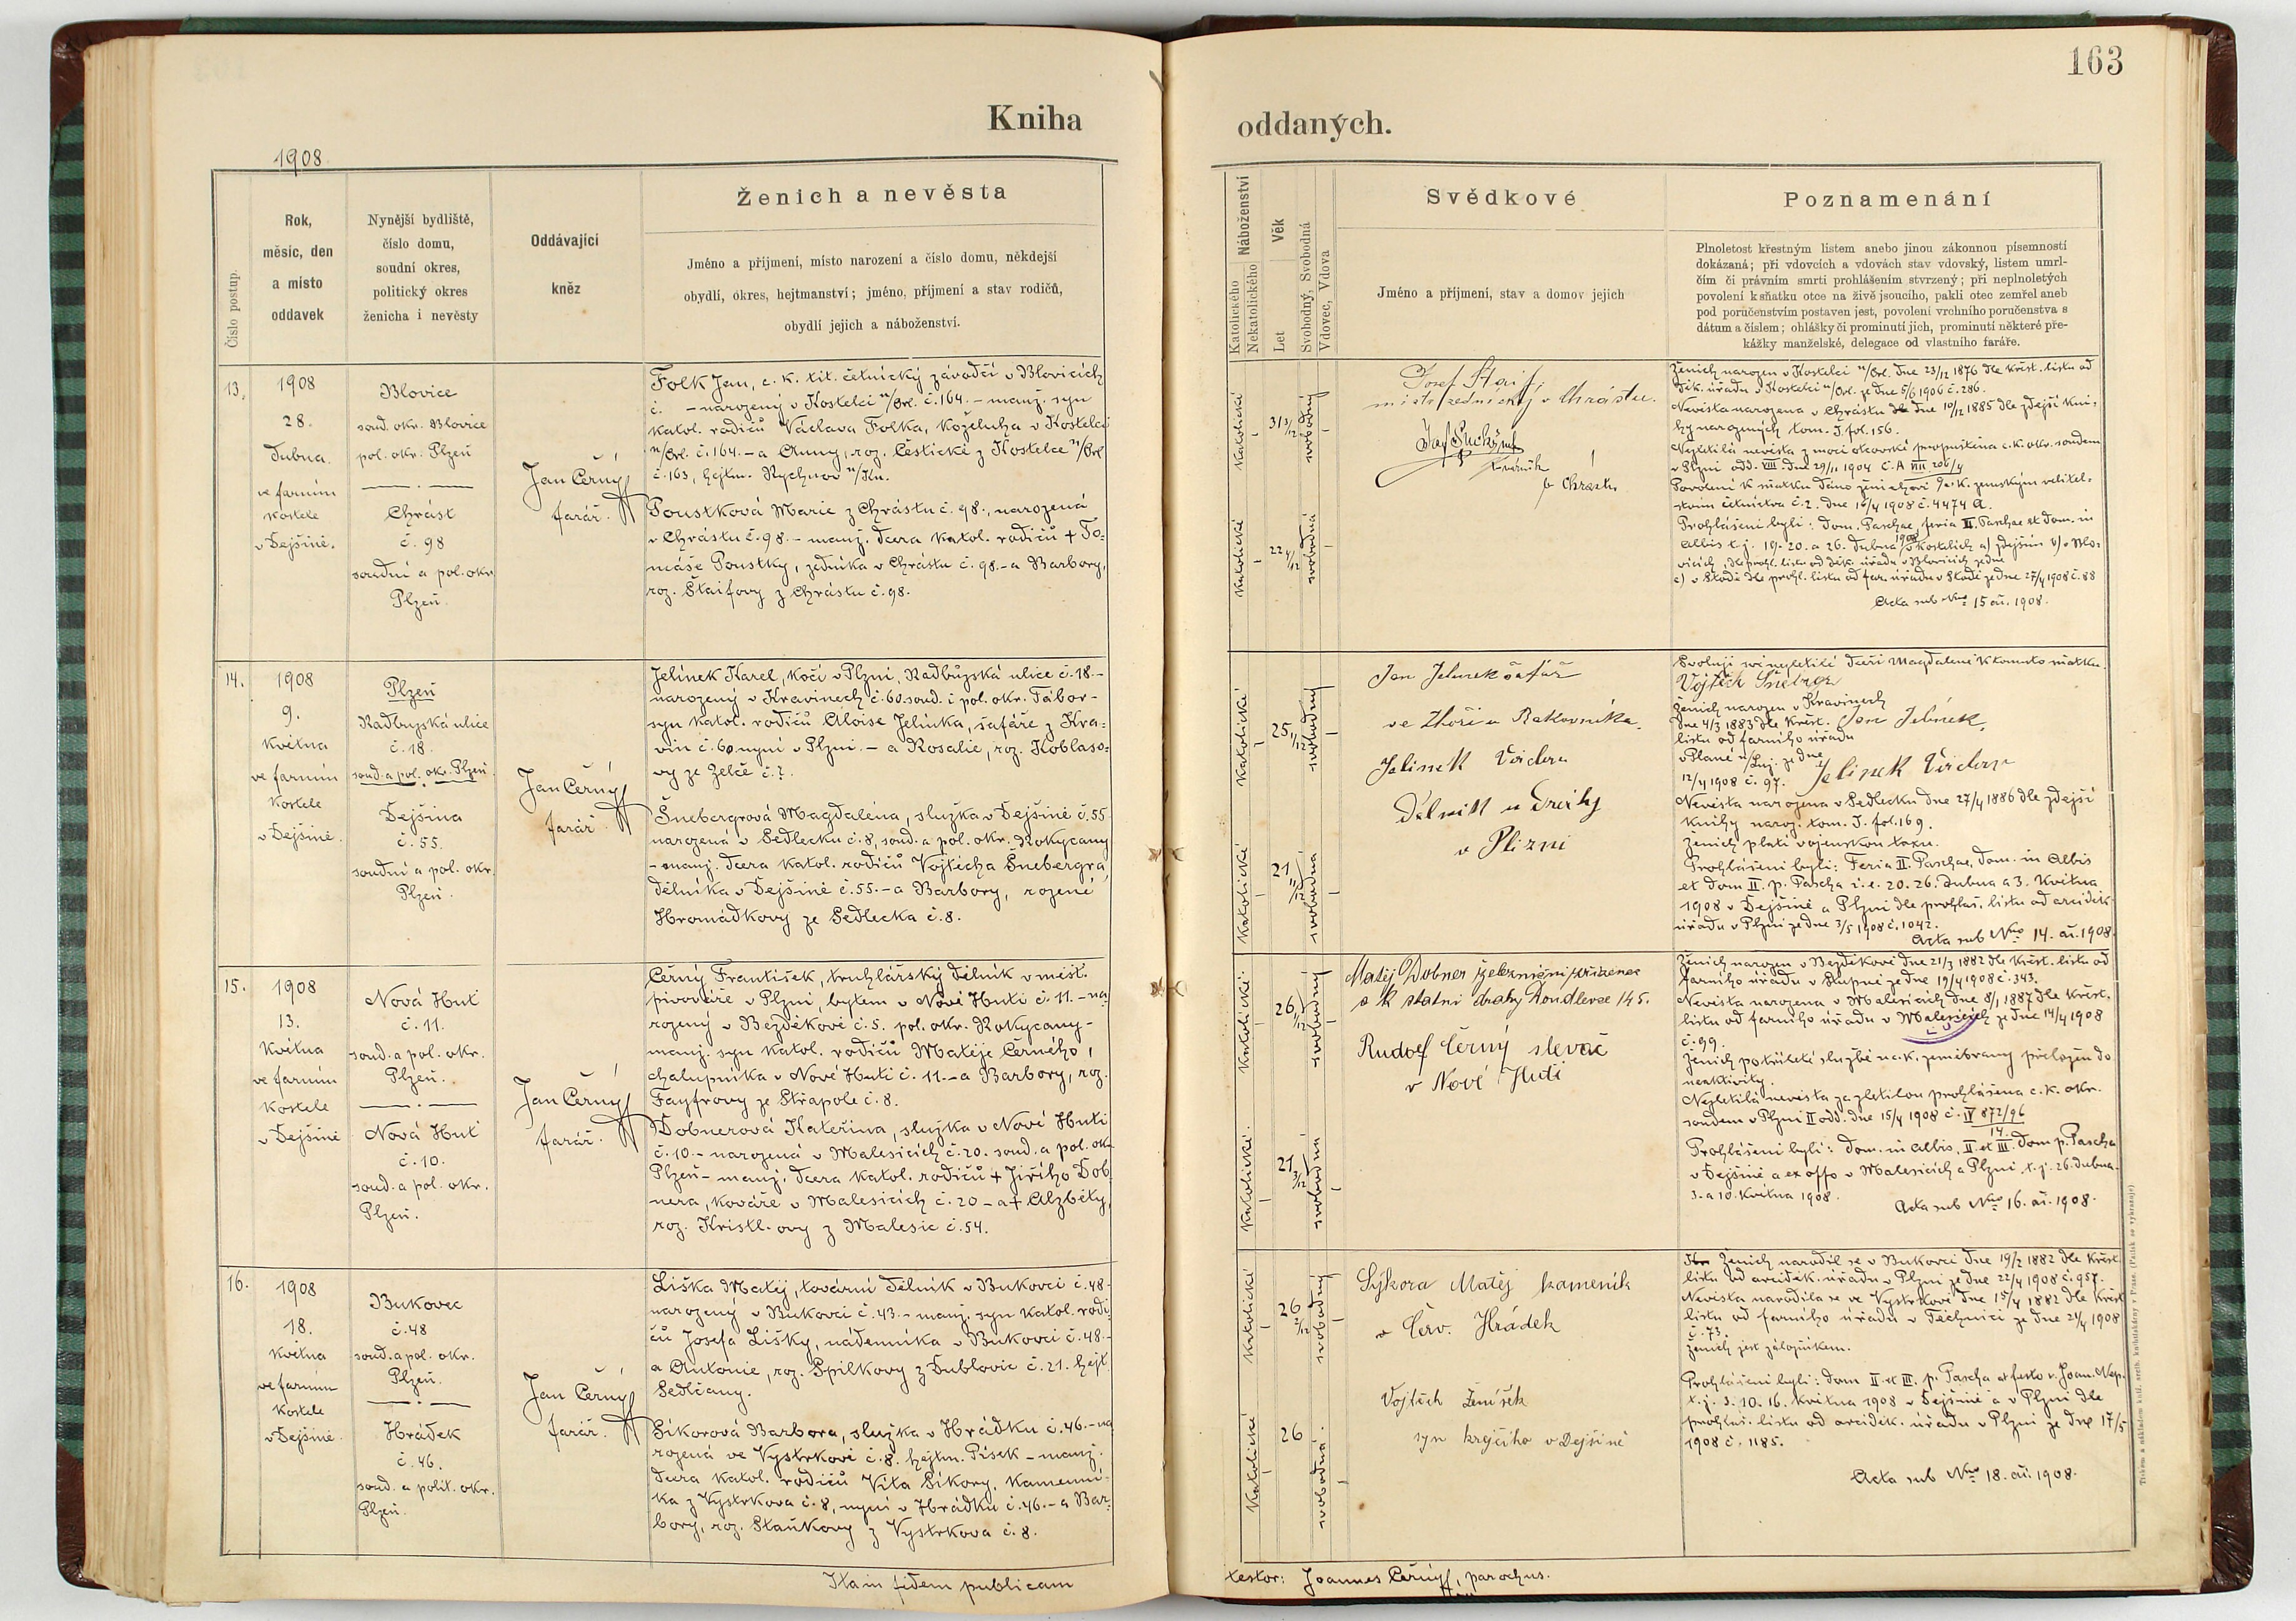 163
Kniha
oddaných.
1908
Číslo postup.
Rok,
měsíc, den
a místo
oddavek
Nynější bydliště,
číslo domu,
soudní okres,
politický okres
ženicha i nevěsty
Oddávající
kněz
Ženich a nevěsta
Jméno a příjmení, místo narození a číslo domu, někdejší
obydlí, okres, hejtmanství; jméno, příjmení a stav rodičů,
obydlí jejich a náboženství.
Náboženství
Katolického
Nekatolického
Věk
Let
Svobodný, Svobodná
Vdovec, Vdova
Svědkové
Jméno a příjmení, stav a domov jejich
Poznamenání
Plnoletost křestným listem anebo jinou zákonnou písemností
dokázaná; při vdovcích a vdovách stav vdovský, listem umrl-
čím či právním smrti prohlášením stvrzený; při neplnoletých
povolení k sňatku otce na živě jsoucího, pakli otec zemřel aneb
pod poručenstvím postaven jest, povolení vrchního poručenstva s
dátum a číslem; ohlášky či prominutí jich, prominutí některé pře-
kážky manželské, delegace od vlastního faráře.
13.
1908
28.
dubna
ve farním
kostele
v Dejšině.
Blovice
soud. okr. Blovice
pol. okr. Plzeň
Chrást
č. 98
soudní a pol. okr.
Plzeň.
Jan Černý
farář.
Folk Jan, c. k. tit. četnický závodčí v Blovicích
č. – narozený v Kostelci n/Orl. č. 164. – manž. syn
katol. rodičů Václava Folka, koželuha v Kostelci
n/Orl. č. 164. – a Anny, roz. Čestické z Kostelce n/Orl
č. 163, hejtm. Rychnov n/Kn.
Poustková Marie z Chrástu č. 98., narozená
v Chrástu č. 98. – manž. dcera katol. rodičů + To-
máše Poustky, zedníka v Chrástu č. 98. – a Barbory,
roz. Štaifovy z Chrástu č. 98.
katolické
31 3/12
svobodný
katolické
22 4/12
svobodna
Josef Štaif,
mistr zednický v Chrástu.
Josef Suchý
v Chrástu
Ženich narozen v Kostelci n/Orl. dne 23/12 1876 dle křest. listu od
děk. úřadu v Kostelci n/Orl. ze dne 5/6 1906 č. 286.
Nevěsta narozena v Chrástu dne 10/12 1885 dle zdejší kni-
hy narozených tom. I. fol. 156.
Nezletilá nevěsta z moci otcovské propuštěna c. k. okr. soudem
v Plzni odd. VIII. dne 29/11 1904 č. A VIII 206/4
Povolení k sňatku dáno ženichovi c. k. zemským velitel-
stvím četnictva č. 2. dne 15/4 1908 č. 4474 A.
Prohlášeni byli: Dom. Paschae, feria II. Paschae et Dom. in
Albis t. j. 19. 20. a 26. dubna 1908 v kostelích a) Dejšině b) v Blo-
vicích, dle prohl. listu od děk. úřadu v Blovicích ze dne
c) v Stodě dle prohl. listu od far. úřadu v Stodě ze dne 27/4 1908 č. 88
Acta sub Nro 15 ai. 1908.
14.
1908
9.
května
ve farním
kostele
v Dejšině.
Plzeň
Radbuzská ulice
č. 18.
soud. a pol. okr. Plzeň.
Dejšina
č. 55.
soudní a pol. okr.
Plzeň.
Jan Černý
farář
Jelínek Karel, kočí v Plzni, Radbůzská ulice č. 18. –
narozený v Kravínech č. 60. soud. i pol. okr. Tábor –
syn katol. rodičů Aloise Jelínka, šafáře z Kra-
vín č. 60 nyní v Plzni. – a Rosalie, roz. Koblaso-
vy ze Želče č. ?.
Šnebergrová Magdaléna, služka v Dejšině č. 55
narozená v Sedlecku č. 8, soud. a pol. okr. Rokycany
– manž. dcera katol. rodičů Vojtěcha Šnebergra
dělníka v Dejšině č. 55. – a Barbory, rozené
Hromádkovy ze Sedlecka č. 8.
katolické
25 1/12
svobodný
katolické
21 11/12
svobodna
Jan Jelinek šafář
ve Zhoři u Rakovníka.
Jelinek
Dělnik u Dráhy
v Plizni
Svoluji své nezletilé dceři Magdaleně k tomuto sňatku.
Vojtěch Šneberger
Ženich narozen v Kravinech
dne 4/3 1883 dle křest.
listu od farního úřadu
v Plané n/Luž. ze dne
12/4 1908 č. 97.
Jan Jelínek,
Jelinek
Nevěsta narozena v Sedlecku dne 27/4 1886 dle zdejší
knihy naroz. tom. I. fol. 169.
Ženich platí vojenskou taxu.
Prohlášeni byli: Feria II. Paschae, Dom. in Albis
et Dom II. p. Pascha i. e. 20. 26. dubna a 3. května
1908 v Dejšině a Plzni dle prohlaš. listu od arciděk.
úřadu v Plzni ze dne 3/5 1908 č. 1042.
Acta sub Nro 14. ai. 1908.
15.
1908
13.
května
ve farním
kostele
v Dejšině
Nová Huť
č. 11.
soud. a pol. okr.
Plzeň.
Nová Huť
č. 10.
soud. a pol. okr.
Plzeň.
Jan Černý
farář.
Černý František, truhlářský dělník v měšť.
pivováře v Plzni, bytem v Nové Huti č. 11. – na-
rozený v Bezděkově č. 5. pol. okr. Rokycany –
manž. syn katol. rodičů Matěje Černého,
chalupníka v Nové Huti č. 11. – a Barbory, roz.
Fayfrovy ze Střapole č. 8.
Dobnerová Kateřina, služka v Nové Huti
č. 10. – narozená v Malesicích č. 20. soud. a pol. okr
Plzeň – manž. dcera katol. rodičů + Jiřího Dob-
nera, kováře v Malesicích č. 20 – a + Alzběty,
roz. Kristl. ovy z Malesic č. 54.
katolické.
26 1/12
svobodný
katolické.
21 3/12
svobodna
Matěj Dobner železniční zřízenec
c k statní drahy Doudlevce 145.
Rudolf Černý slevač
v Nové Huti
Ženich narozen v Bezděkově dne 21/3 1882 dle křest. listu od
farního úřadu v Skupné ze dne 19/4 1908 č. 343.
Nevěsta narozena v Malesicích dne 8/1 1887 dle křest.
listu od farního úřadu v Malesicích ze dne 14/4 1908
č. 99.
Ženich po tříleté službě u c. k. zeměbrany přeložen do
neaktivity.
Nezletilá nevěsta za zletilou prohlášena c. k. okr.
soudem v Plzni II odd. dne 15/4 1908 č. IV 872/96
14.
Prohlášeni byli: Dom. in Albis, II. et III. Dom p. Pascha
v Dejšině a ex offo v Malesicích a Plzni t. j. 26. dubna.
3. a 10. května 1908.
Acta sub Nro 16. ai. 1908.
16.
1908
18.
května
ve farním
kostele
v Dejšině.
Bukovec
č. 48
soud. a pol. okr.
Plzeň.
Hrádek
č. 46.
soud. a polit. okr.
Plzeň.
Jan Černý
farář.
Liška Matěj, tovární dělník v Bukovci č. 48 –
narozený v Bukovci č. 43. – manž. syn katol. rodi-
čů Josefa Lišky, nádenníka v Bukovci č. 48. –
a Antonie, roz. Spilkovy z Dublovic č. 21. hejt.
Sedlčany.
Sikorová Barbora, služka v Hrádku č. 46. – na
rozená ve Vystrkově č. 8. hejtm. Písek – manž.
dcera katol. rodičů Víta Sikory, kamenní-
ka z Vystrkova č. 8, nyní v Hrádku č. 46. – a Bar-
bory, roz. Staňkovy z Vystrkova č. 8.
katolické
26 2/12
svobodný
katolické
26
svobodná.
Sýkora Matěj kameník
v Červ. Hrádek
Vojtěch Ženíšek
syn krejčího v Dejšině
Ženich narodil se v Bukovci dne 19/2 1882 dle křest.
listu od arciděk. úřadu v Plzni ze dne 22/4 1908 č. 957.
Nevěsta narodila se ve Vystrkově dne 15/4 1882 dle křest
listu od farního úřadu v Technici ze dne 24/4 1908
č. 73.
Ženich jest záložníkem.
Prohlášeni byli: Dom II. et III. p. Pascha et festo s. Joan. Nep.
t. j. 3. 10. 16. května 1908 v Dejšině a v Plzni dle
prohlaš. listu od arciděk. úřadu v Plzni ze dne 17/5
1908 č. 1185.
Acta sub Nro 18. ai. 1908.
Ita in fidem publicam
testor: Joannes Černý, parochus.